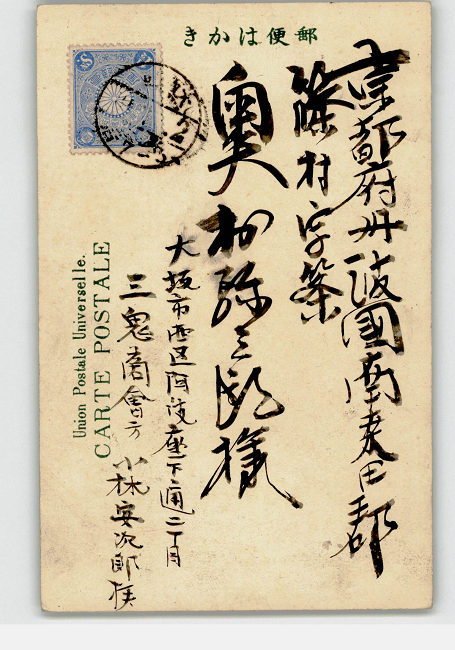 きかは便郵
京都府丹波國南桑田郡
篠村字篠
奥村弥三郎様
大坂市西区阿波座下通二丁目
三鬼商會方
小林安次郎
Union Postale Universelle.
CARTE POSTALE